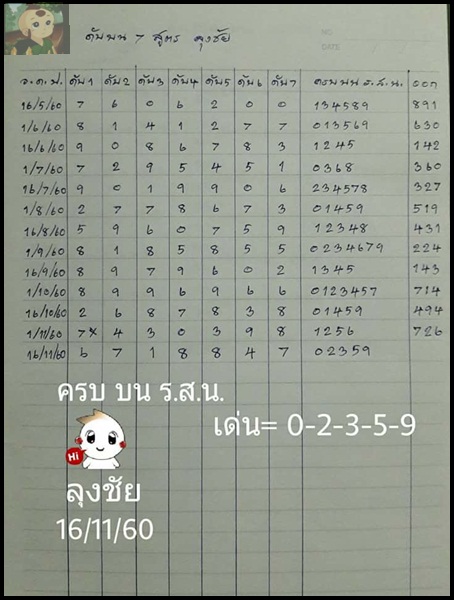 ดับบน 7 สูตร ลุงชัย
NO.
DATE
ว.ด.ป. ดับ1 ดับ2 ดับ3 ดับ4 ดับ5 ดับ6 ดับ7 ครบ บน ร.ส.น. ออก
16/5/60 7 6 0 6 2 0 0 134589 891
1/6/60 8 1 4 1 2 7 7 013569 630
16/6/60 9 0 8 6 7 8 3 1245 142
1/7/60 7 2 9 5 4 5 1 0368 360
16/7/60 9 0 1 9 9 0 6 234578 327
1/8/60 2 7 7 8 6 7 3 01459 519
16/8/60 5 9 6 0 7 5 9 12348 431
1/9/60 8 1 8 5 8 5 5 0234679 224
16/9/60 8 9 7 9 6 0 2 1345 143
1/10/60 8 9 9 6 9 6 6 0123457 714
16/10/60 2 6 8 7 8 3 8 01459 494
1/11/60 7× 4 3 0 3 9 8 1256 726
16/11/60 6 7 1 8 8 4 7 02359
ครบ บน ร.ส.น.
เด่น= 0-2-3-5-9
HI
ลุงชัย
16/11/60